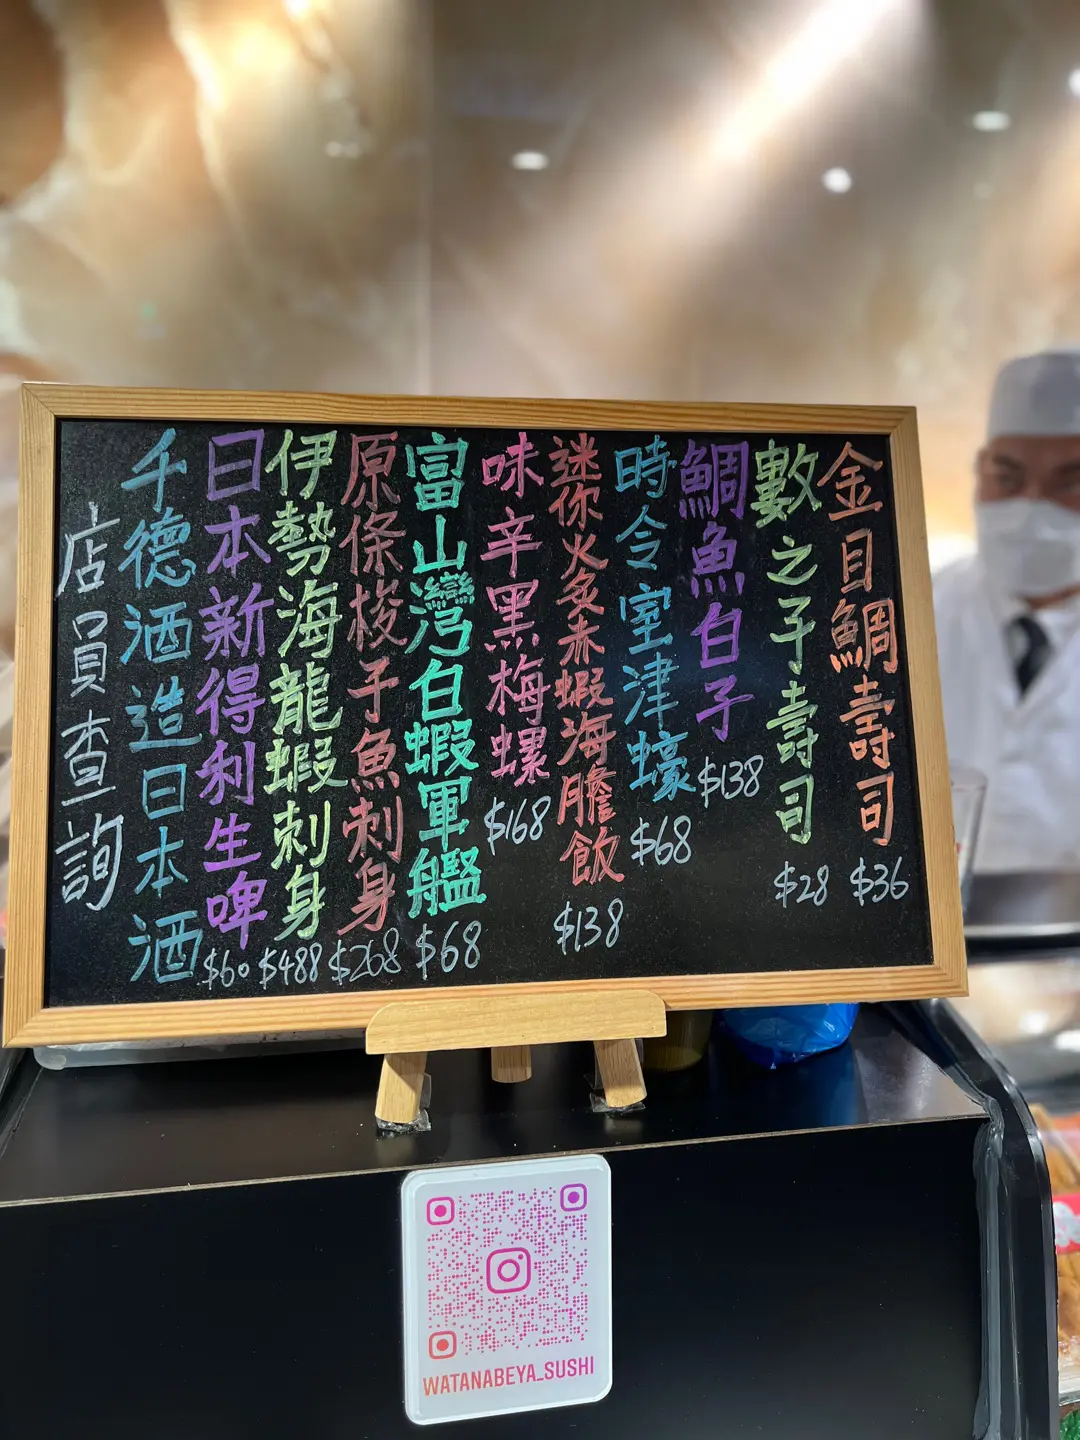 金目鯛壽司 $36
數之子壽司 $28
鯛魚白子 $138
時令室津蠔 $68
迷你火炙赤蝦海膽飯 $138
味辛黑梅螺 $168
富山灣白蝦軍艦 $68
原條梭子魚刺身 $268
伊勢海龍蝦刺身 $488
日本新得利生啤 $60
千德酒造日本酒
店員查詢
WATANABEYA_SUSHI